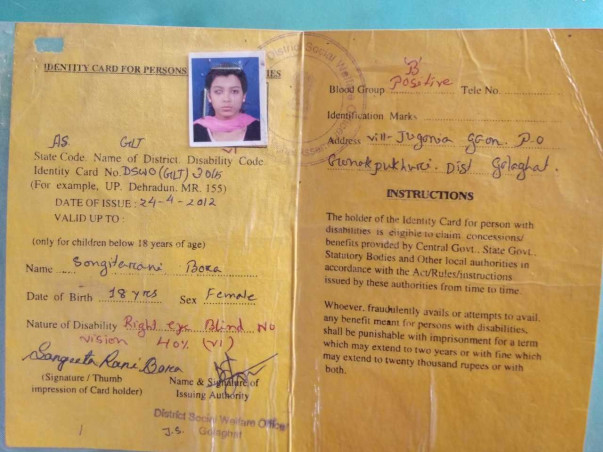 IDENTITY CARD FOR PERSONS
IES
AS. GLT VI
State Code. Name of District. Disability Code.
Identity Card No. DSWO (GLT)
(For example, UP. Dehradun. MR. 155)
DATE OF ISSUE : 24-4-2012
VALID UP TO :
(only for children below 18 years of age)
Name .... Bora
Date of Birth 18 yrs Sex Female
Nature of Disability Right eye Blind No
vision 40% (VI)
Sangeeta Rani Bora
(Signature / Thumb
impression of Card holder)
Name & Signature of
Issuing Authority
District Social Welfare Office
J.S. Golaghat
District Social Welfare
'B'
Blood Group Positive Tele No.
Identification Marks
Address Vill- Jugonia Gaon. P.O
Dist Golaghat.
INSTRUCTIONS
The holder of the Identity Card for person with
disabilities is eligible to claim concessions/
benefits provided by Central Govt., State Govt.,
Statutory Bodies and Other local authorities in
accordance with the Act/Rules/instructions
issued by these authorities from time to time.
Whoever, fraudulently avails or attempts to avail,
any benefit meant for persons with disabilities,
shall be punishable with imprisonment for a term
which may extend to two years or with fine which
may extend to twenty thousand rupees or with
both.